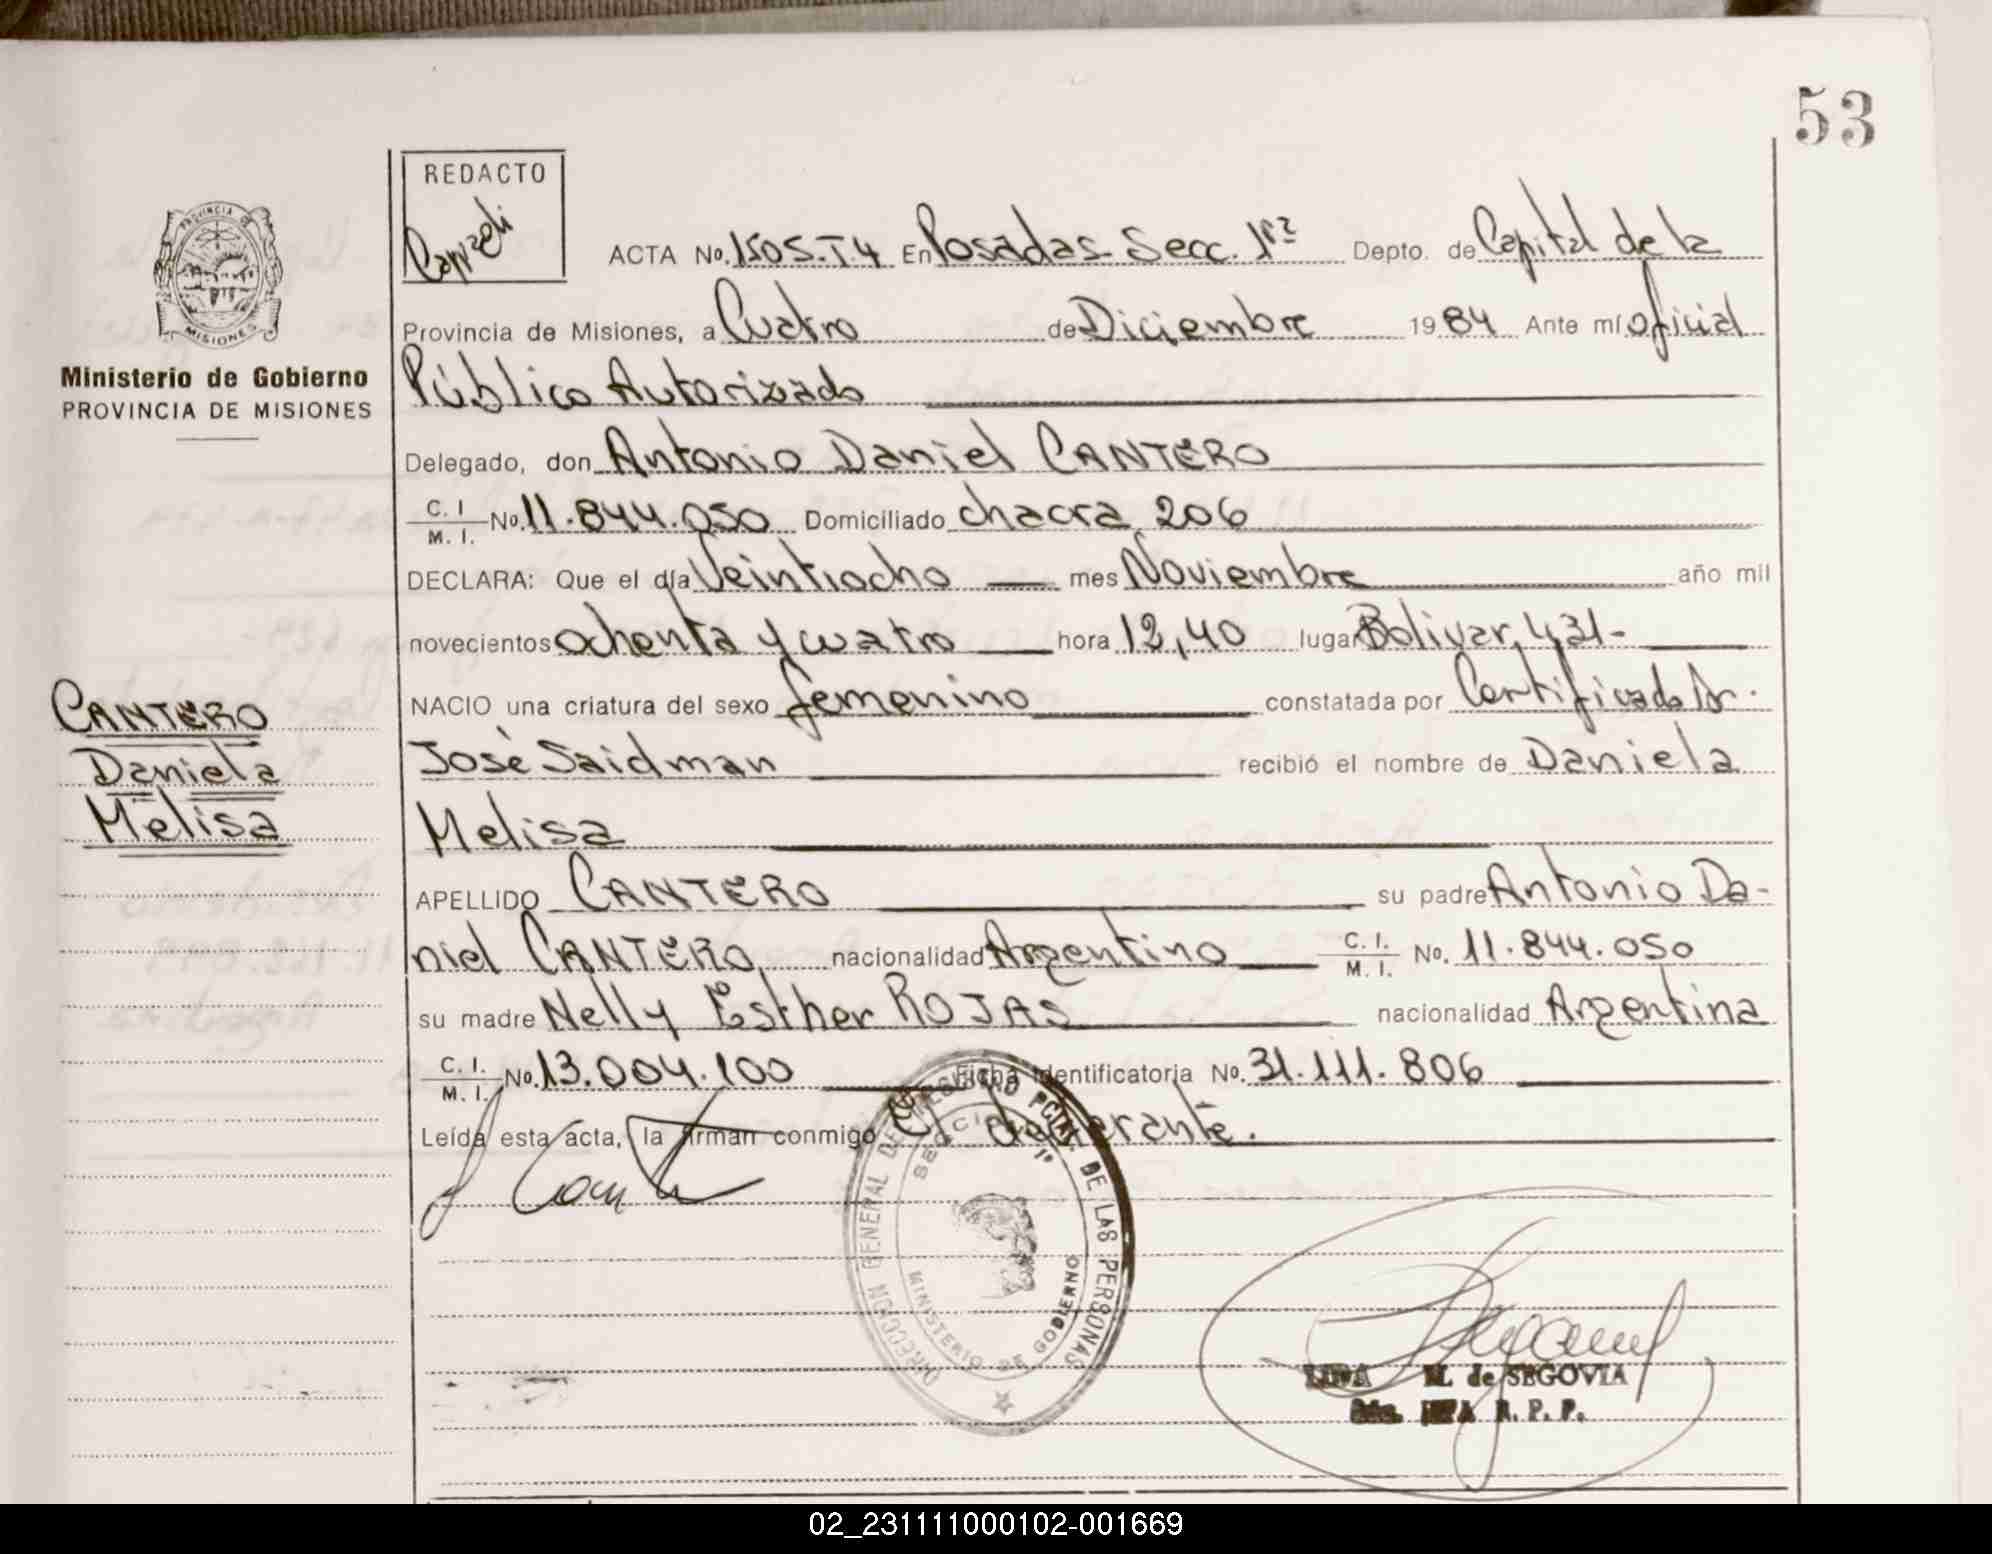 53
REDACTO
ACTA No. 1505-T4 En Posadas Secc. 1ra Depto. de Capital de la
Provincia de Misiones, a Cuatro de Diciembre 1984 Ante mí Oficial
Público Autorizado
Delegado, don Antonio Daniel CANTERO
C. I. / M. I. No. 11.844.050 Domiciliado chacra 206
DECLARA: Que el día Veintiocho mes Noviembre año mil
novecientos ochenta y cuatro hora 12,40 lugar Bolivar, 431-
NACIO una criatura del sexo femenino constatada por Certificado Dr.
José Saidman recibió el nombre de Daniela
Melisa
APELLIDO CANTERO su padre Antonio Da-
niel CANTERO, nacionalidad Argentino C. I. / M. I. No. 11.844.050
su madre Nelly Esther ROJAS nacionalidad Argentina
C. I. / M. I. No. 13.004.100 Ficha Identificatoria No. 31.111.806
Leída esta acta, la firman conmigo El declarante.
PROVINCIA DE MISIONES
Ministerio de Gobierno
PROVINCIA DE MISIONES
CANTERO
Daniela
Melisa
DIRECCION GENERAL DEL REGISTRO PCIAL. DE LAS PERSONAS
SECCION 1ª
MINISTERIO DE GOBIERNO
M. de SEGOVIA
R. P. P.
02_231111000102-001669